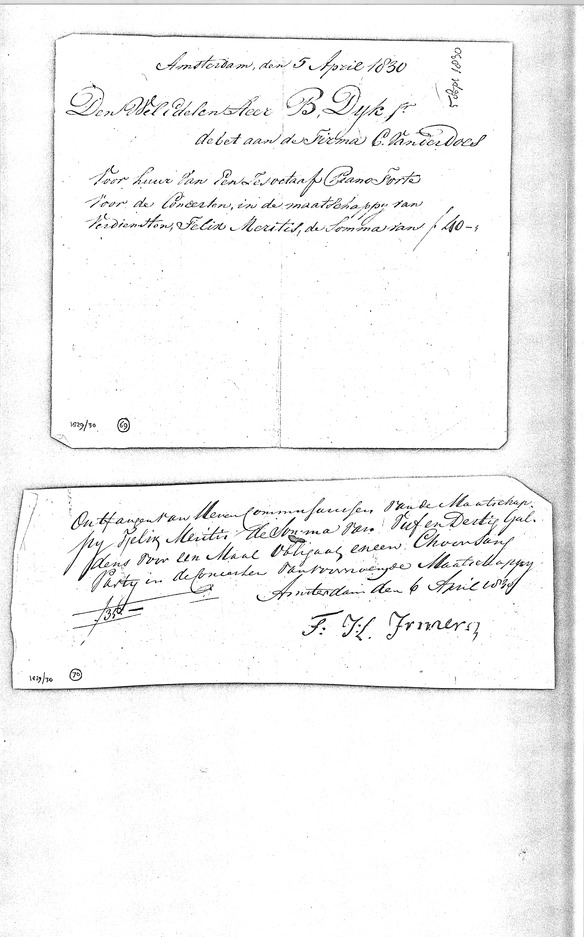 Amsterdam, den 5 April 1830
Den Wel Edelen Heer B, Dyk jr
debet aan de Firma C. Van der Does
Voor huur Van Een Zes octaaf Piano Forte
Voor de Concerten, in de maatschappy van
Verdiensten, Felix Meritis, de Somma van f 40-,
1829/30 69
Ontfangen van Heeren Commissarissen van de Maatschap-
py Felix Meritis de Somma van Vijf en Dertig Gul-
dens voor een Maal Obligaat en een
Party in de Concerten van voornoemde Maatschappy
Amsterdam den 6 April 1830
f35-
F: J:
1829/30 70